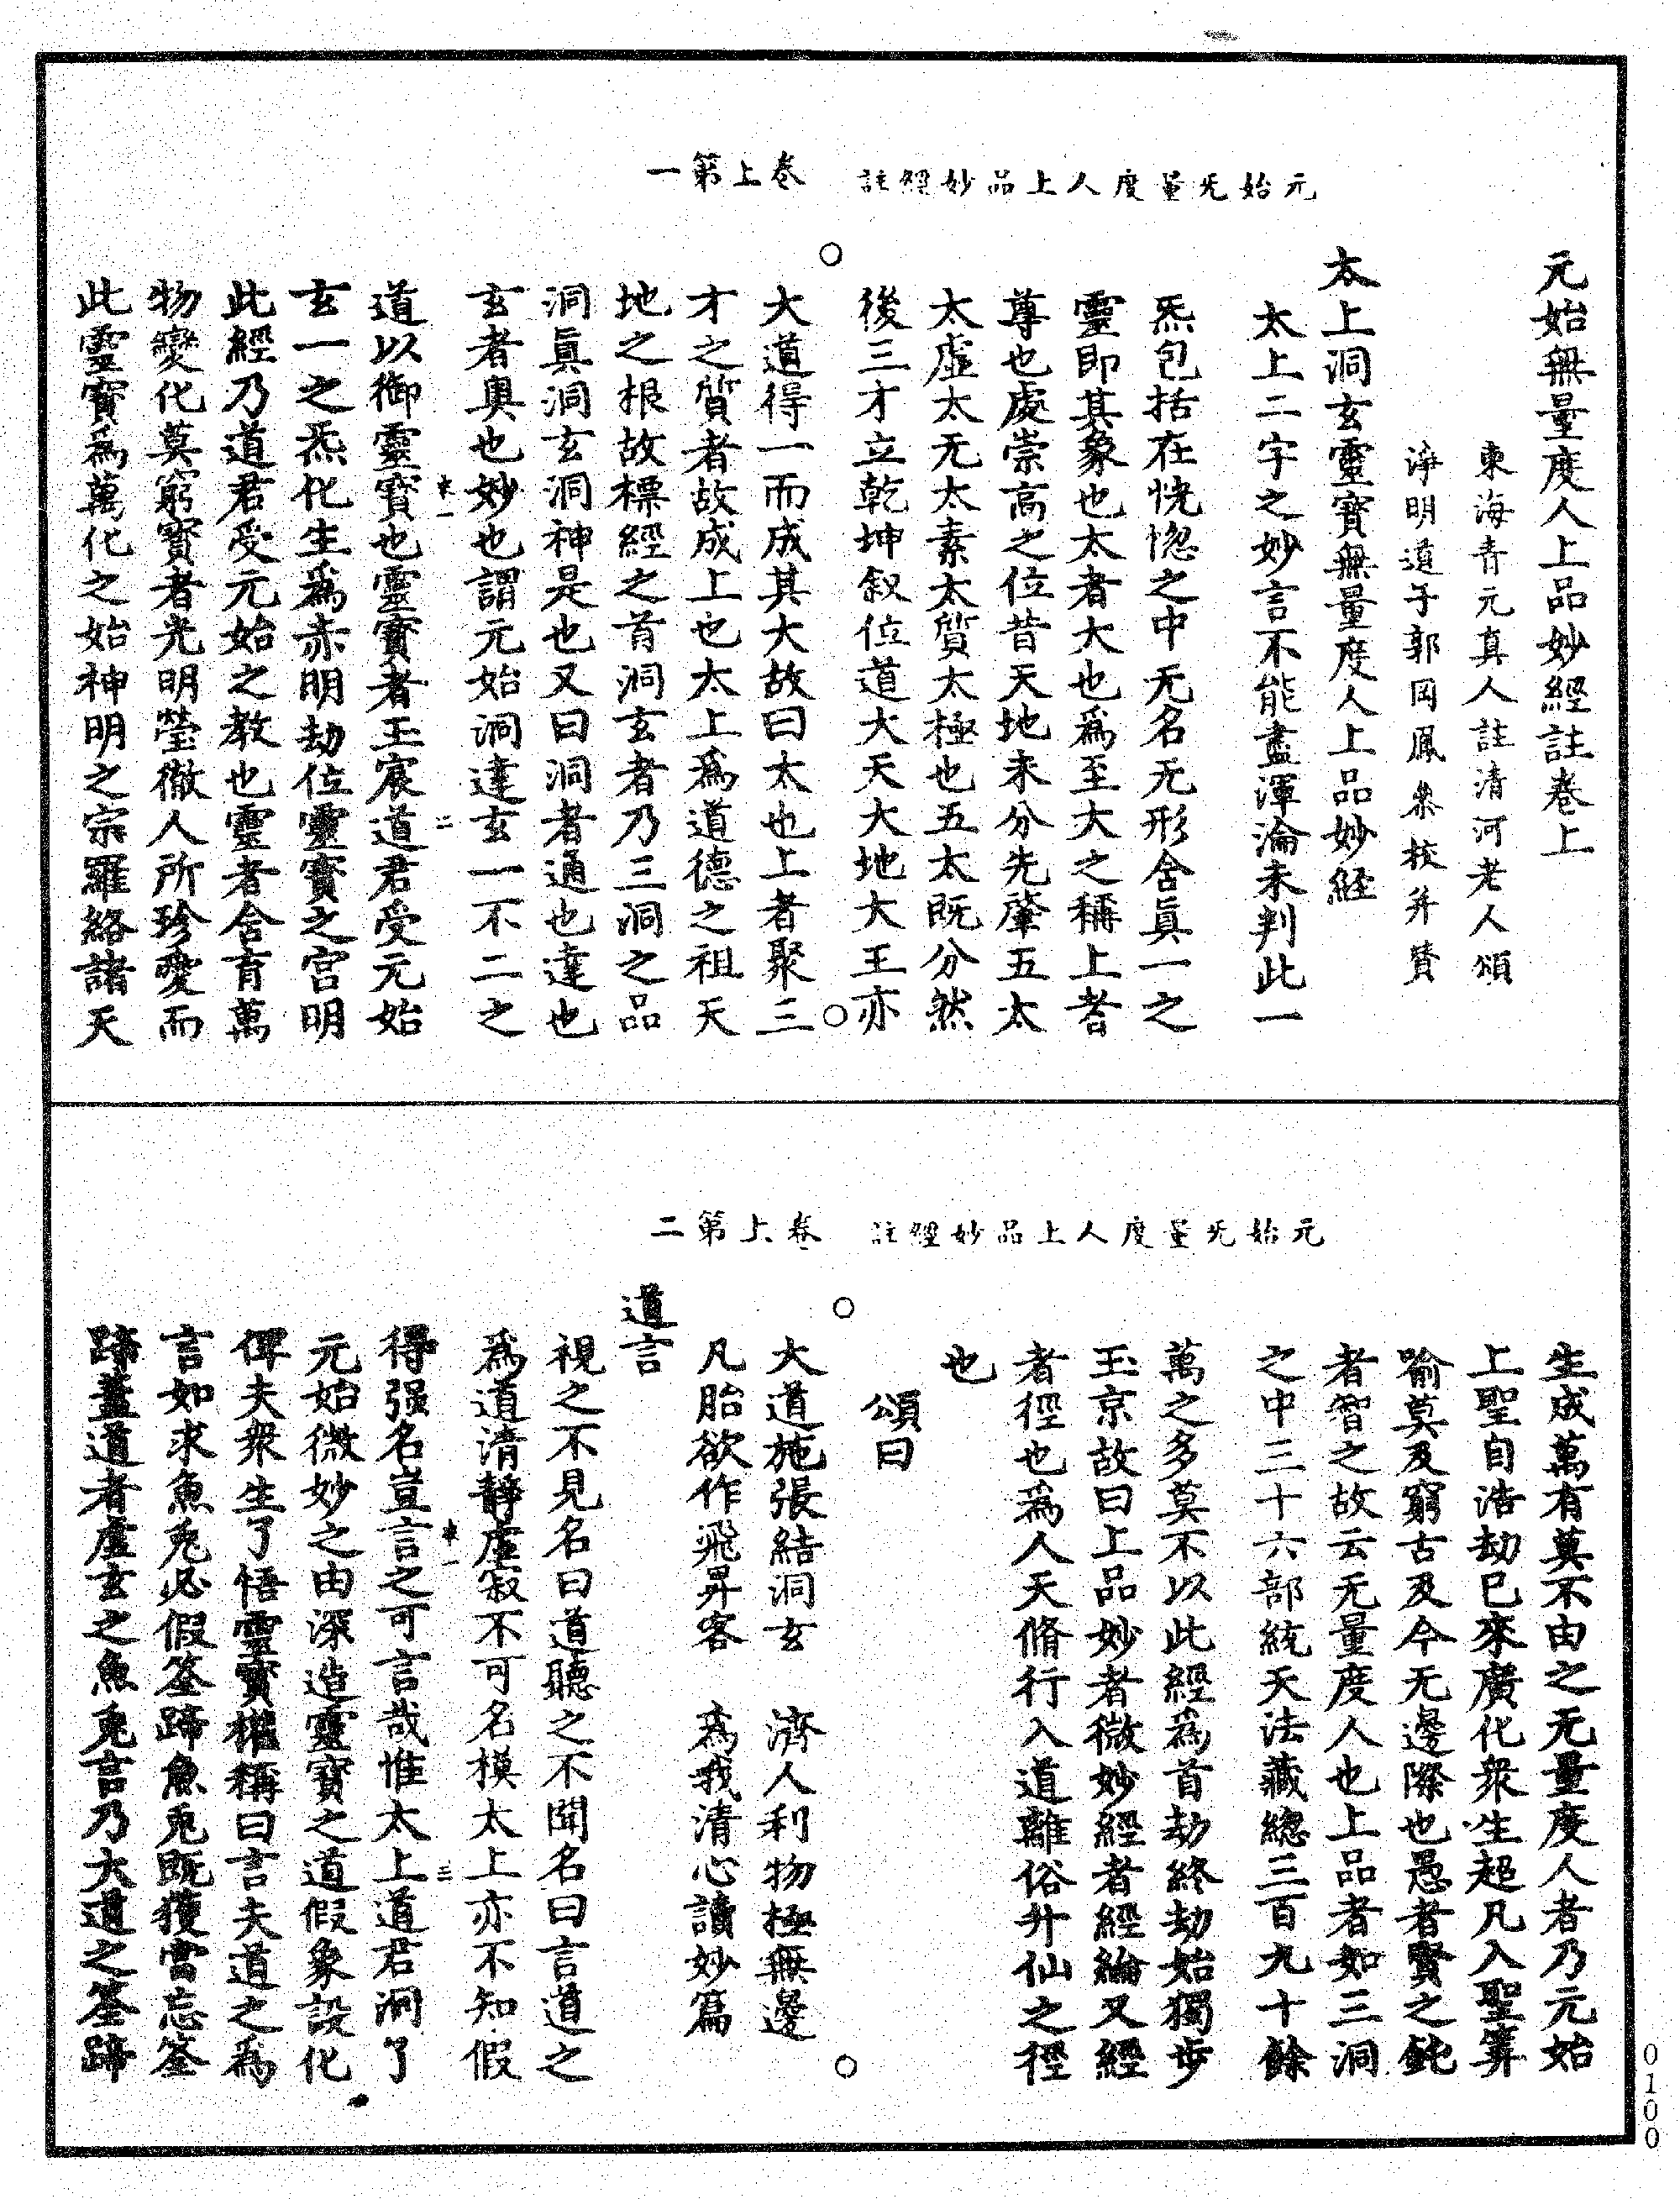 元始无量度人上品妙經註　卷上第一
元始無量度人上品妙經註卷上
東海青元真人註清河老人頌
淨明道子郭岡鳳叅校并贊
太上洞玄靈寶無量度人上品妙経
太上二字之妙言不能盡渾淪未判此一
炁包括在恍惚之中无名无形含眞一之
靈即其象也太者大也爲至大之稱上者
尊也處崇高之位昔天地未分先肇五太
太虛太无太素太質太極也五太既分然
後三才立乾坤叙位道大天大地大王亦
大道得一而成其大故曰太也上者聚三
才之質者故成上也太上爲道德之祖天
地之根故標經之首洞玄者乃三洞之品
洞眞洞玄洞神是也又曰洞者通也達也
玄者奥也妙也謂元始洞達玄一不二之
道以御靈寶也靈寶者玉宸道君受元始
玄一之炁化生爲赤明劫位靈寶之宮明
此經乃道君受元始之教也靈者含育萬
物變化莫窮寶者光明瑩徹人所珍愛而
此靈寶爲萬化之始神明之宗羅絡諸天
元始无量度人上品妙經註　卷上第二
生成萬有莫不由之无量度人者乃元始
上聖自浩劫巳來廣化衆生超凡入聖筭
喻莫及窮古及今无邊際也愚者賢之鈍
者智之故云无量度人也上品者如三洞
之中三十六部統天法藏總三百九十餘
萬之多莫不以此經爲首劫終劫始獨步
玉京故曰上品妙者微妙經者經綸又經
者徑也爲人天脩行入道離俗升仙之徑
也
頌曰
大道施張結洞玄　濟人利物極無邊
凡胎欲作飛昇客　爲我清心讀妙篇
道言
視之不見名曰道聽之不聞名曰言道之
爲道清靜虛寂不可名模太上亦不知假
得强名豈言之可言哉惟太上道君洞了
元始微妙之由深造靈寶之道假象設化
俾夫衆生了悟靈寶權稱曰言夫道之爲
言如求魚兎必假筌蹄魚兎既獲當忘筌
蹄蓋道者虛玄之魚兎言乃大道之筌蹄
0100